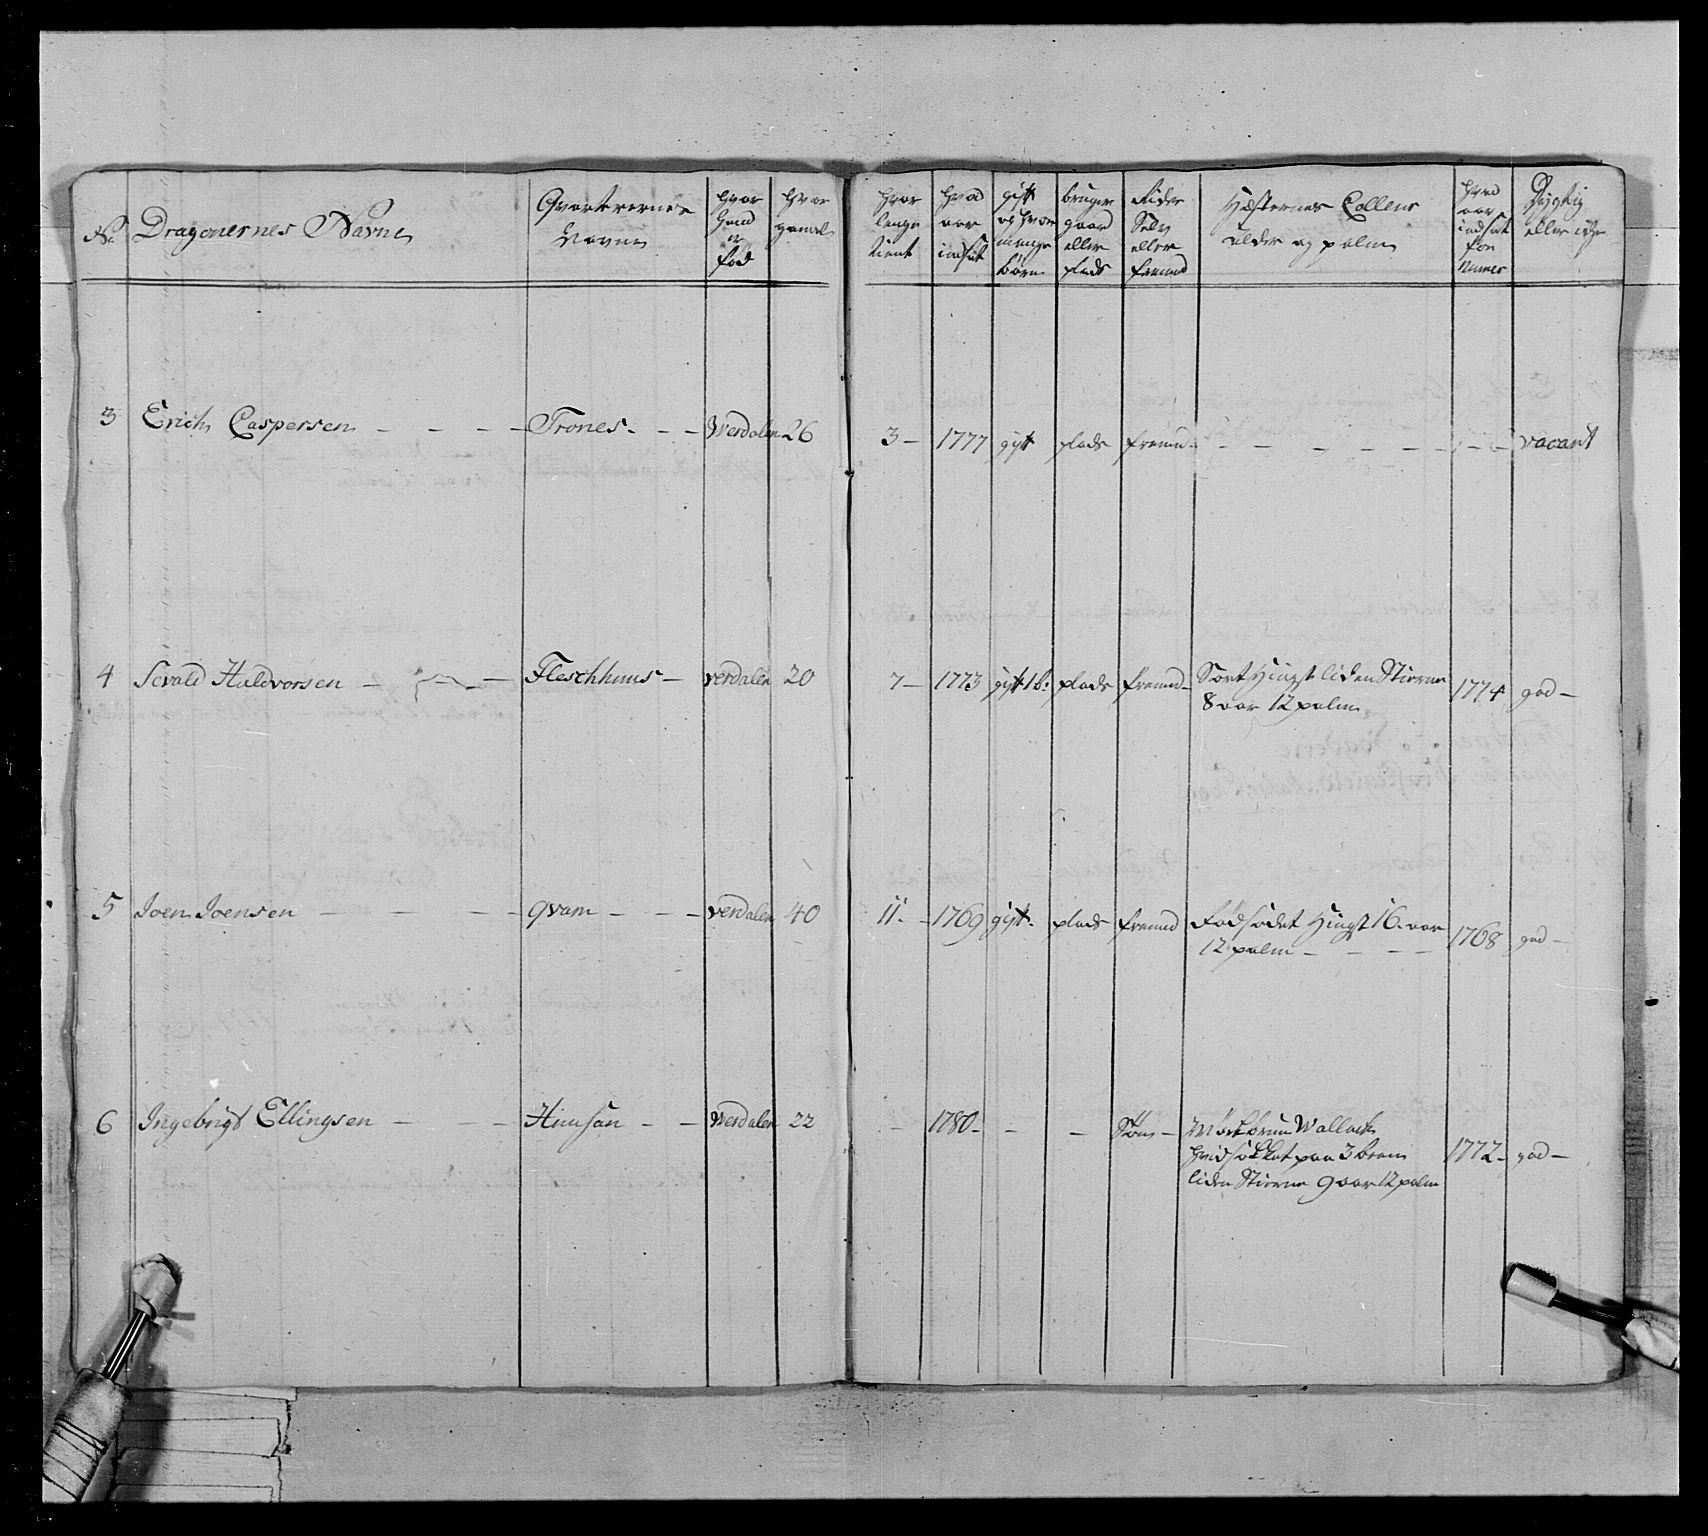 No Dragonernes Navne
Qvarterernes Navne
hvor hand er fød
hvor gamel
hvor lenge tient
hvad aar indsat
gift og hvor mange børn
bruger gaard eller plads
Rider Selv eller fremd
Hæsternes Colleur alder og palm
hvad aar indsat for Numer
Dygtig eller ikke
3 Erich Caspersen - - - - Trones - - - Werdalen 26 3 - 1777 gift plads fremd - - - - - - - - - vacant
4 Sevald Haldvorsen - - - Fleschhuus - verdalen 20 7 - 1773 gift 1 b: plads fremd - Sort Hingst liden Stierne
8 aar 12 palm 1774 god -
5 Joen Joensen - - - - qvam - - - verdalen 40 11 - 1769 gift - plads fremd Rødhodet Hingst 16 aar
12 palm - - - - 1768 god -
6 Ingebrigt Ellingsen - - - - verdalen 22 - 1780 - - - Søn - Mørkbrun Wallack
hvidsokket paa 3 been 1772 - god -
liden Stierne 9 aar 12 palm